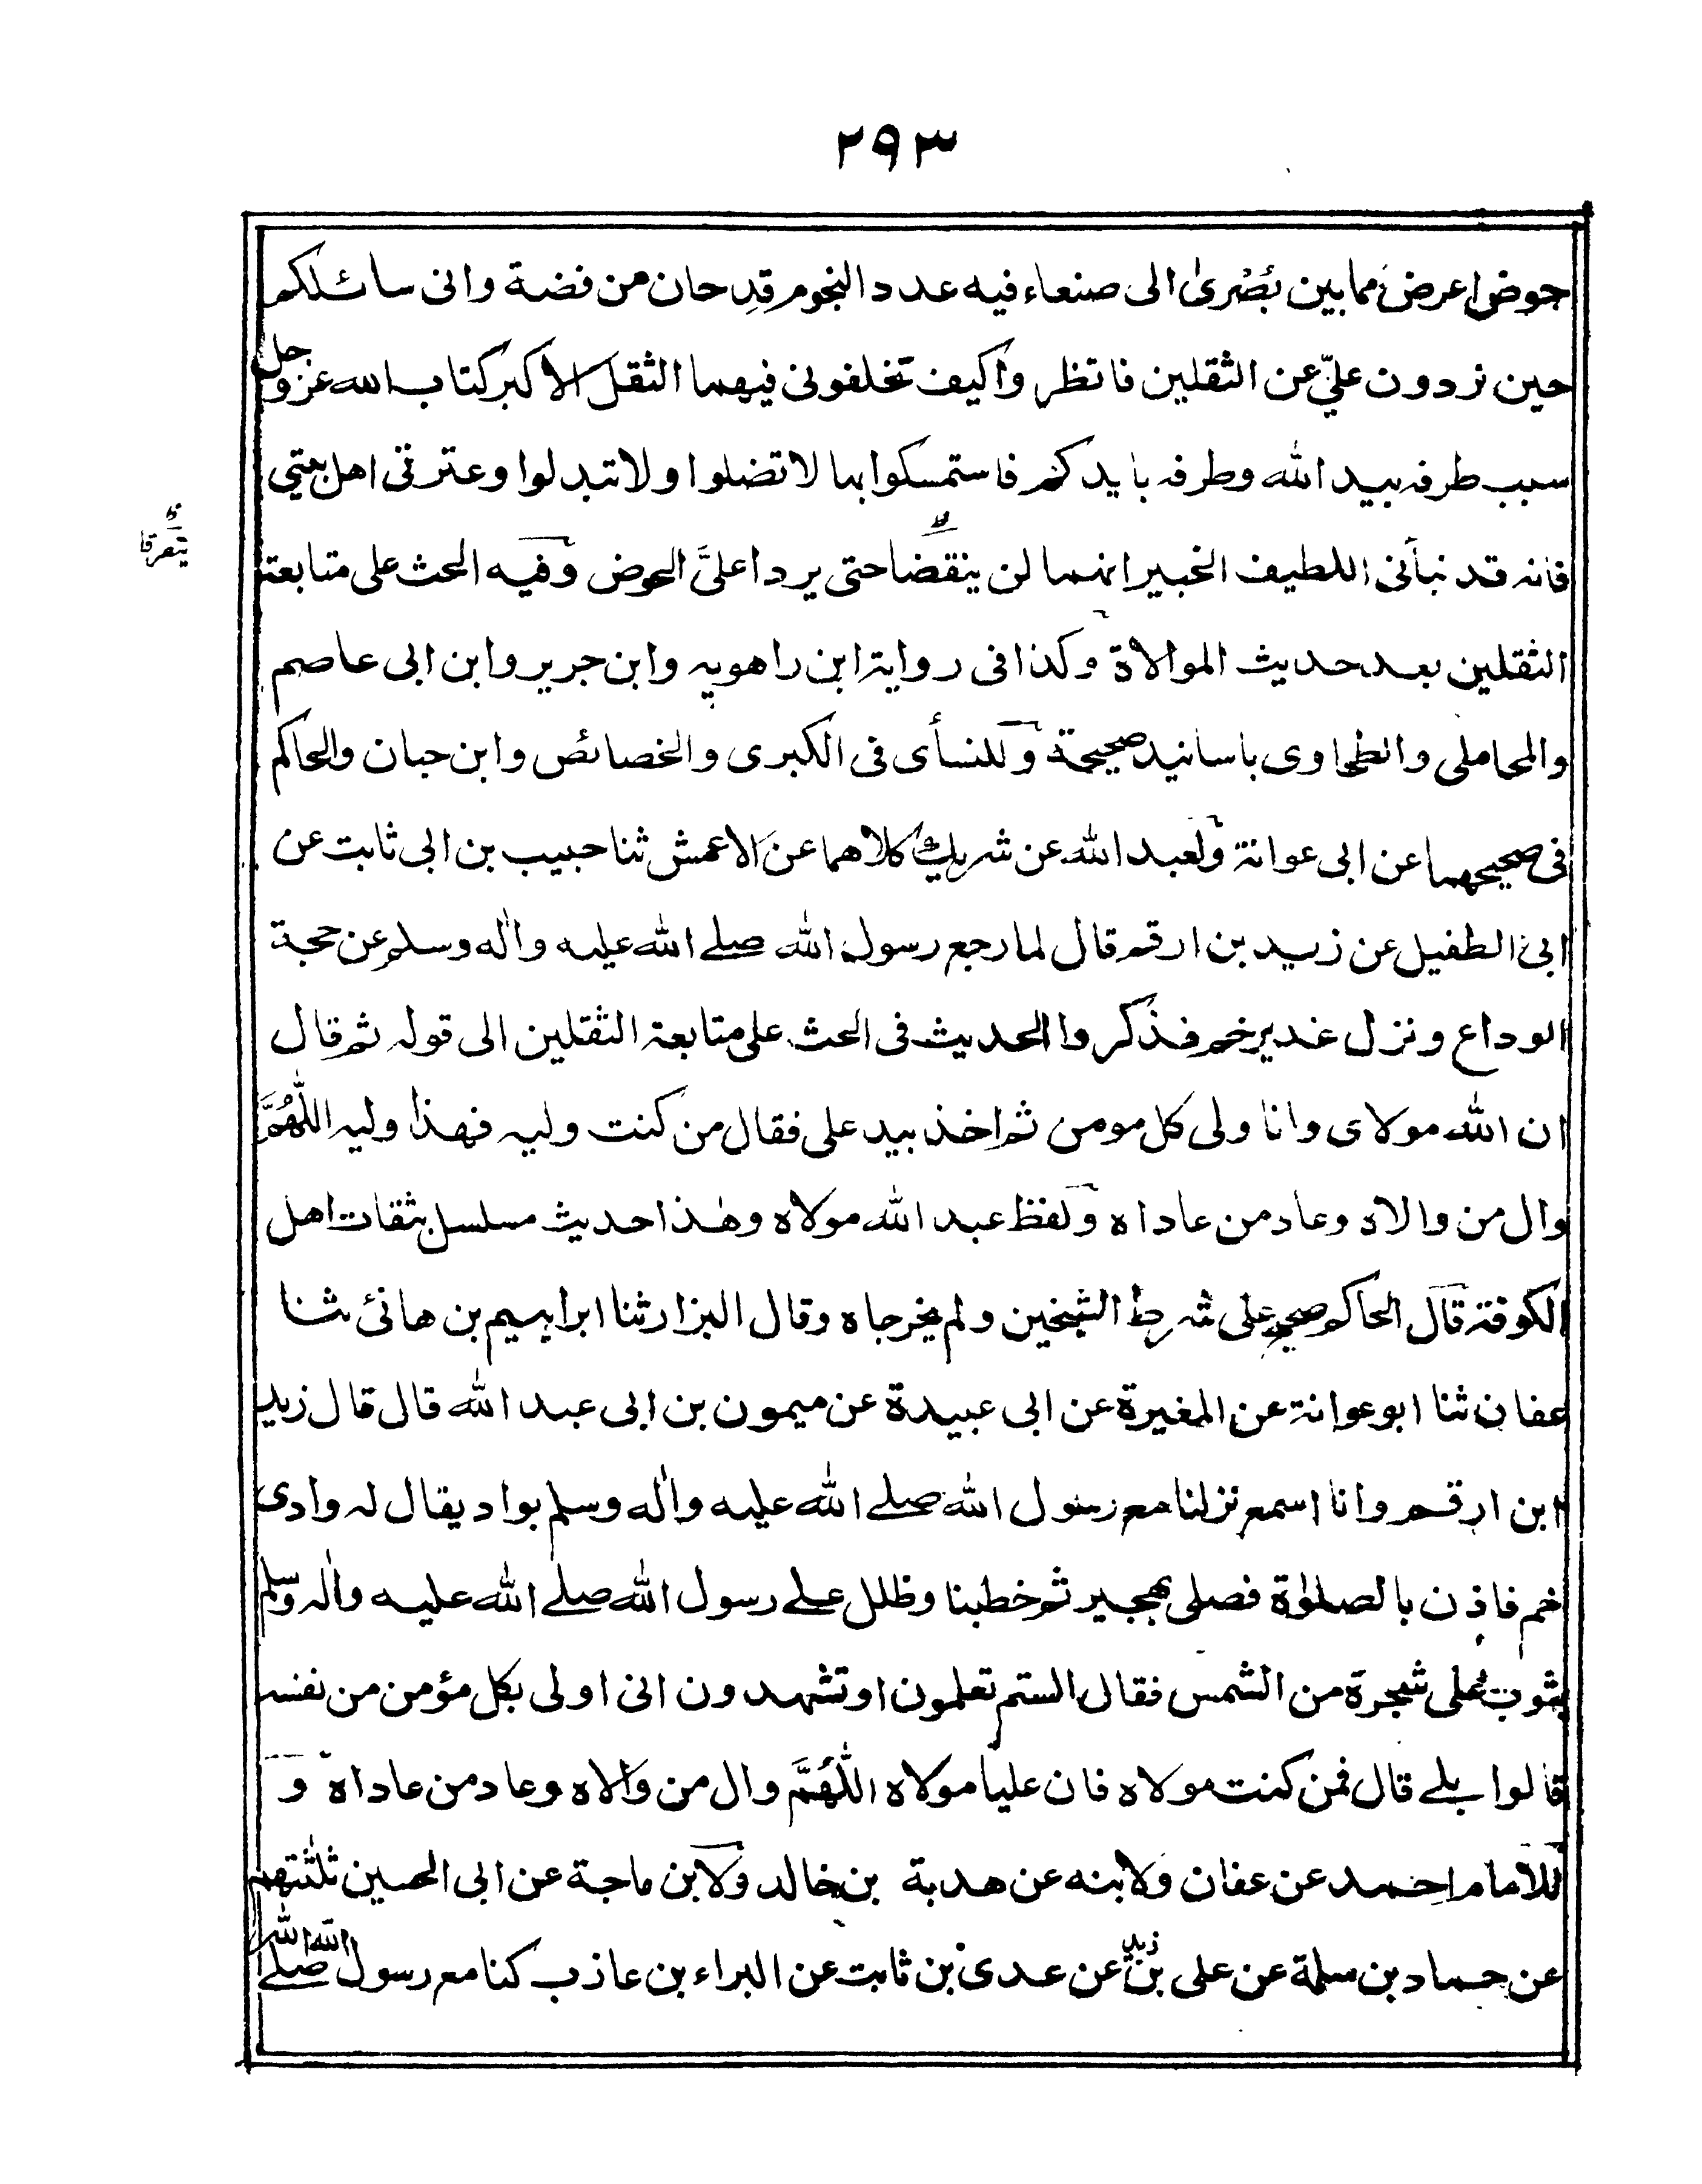 ٢٩٣
حوض اعرض مما بين بُصْرىٰ الى صنعاء فيه عدد النجوم قدحان من فضة وانى سائلكم
حين تردون علىّ عن الثقلين فانظروا كيف تخلفونى فيهما الثقل الاكبر كتاب الله عزوجل
سبب طرفه بيد الله وطرفه بايدكم فاستمسكوا بها لا تضلوا ولا تبدلوا وعترتى اهل بيتي
فانه قد نبأنى اللطيف الخبير انهما لن ينقضا حتى يردا علىَّ الحوض وفيه الحث على متابعة
يتفرقا
الثقلين بعد حديث الموالاة وكذا فى رواية ابن راهويه وابن جرير وابن ابى عاصم
والمحاملى والطحاوى باسانيد صحيحة وللنسأى فى الكبرى والخصائص وابن حبان والحاكم
فى صحيحهما عن ابى عوانة ولعبد الله عن شريك كلاهما عن الاعمش ثنا حبيب بن ابى ثابت عن
ابى الطفيل عن زيد بن ارقم قال لما رجع رسول الله صلے الله عليه واٰله وسلم عن حجة
الوداع ونزل غدير خم فذكروا الحديث فى الحث على متابعة الثقلين الى قوله ثم قال
ان الله مولاى وانا ولى كل مومن ثم اخذ بيد على فقال من كنت وليه فهذا وليه اللّٰهُمَّ
وال من والاه وعاد من عاداه ولفظ عبد الله مولاه وهٰذا حديث مسلسل بثقات اهل
الكوفة قال الحاكم صحيح على شرط الشيخين ولم يخرجاه وقال البزار ثنا ابراهيم بن هانئ ثنا
عفان ثنا ابو عوانة عن المغيرة عن ابى عبيدة عن ميمون بن ابى عبد الله قال قال زيد
ابن ارقم وانا اسمع نزلنا مع رسول الله صلے الله عليه واٰله وسلم بواد يقال له وادى
خم فاذن بالصلوٰة فصلى بهجير ثم خطبنا وظلل علے رسول الله صلے الله عليه واٰله وسلم
بثوب على شجرة من الشمس فقال الستم تعلمون او تشهدون انى اولى بكل مؤمن من نفسه
قالوا بلے قال فمن كنت مولاه فان عليا مولاه اللّٰهُمَّ وال من والاه وعاد من عاداه و
للامام احمد عن عفان ولابنه عن هدبة بن خالد ولابن ماجة عن ابى الحسين ثلثتهم
عن حماد بن سلمة عن على بن زيد عن عدى بن ثابت عن البراء بن عازب كنا مع رسول الله صلے الله